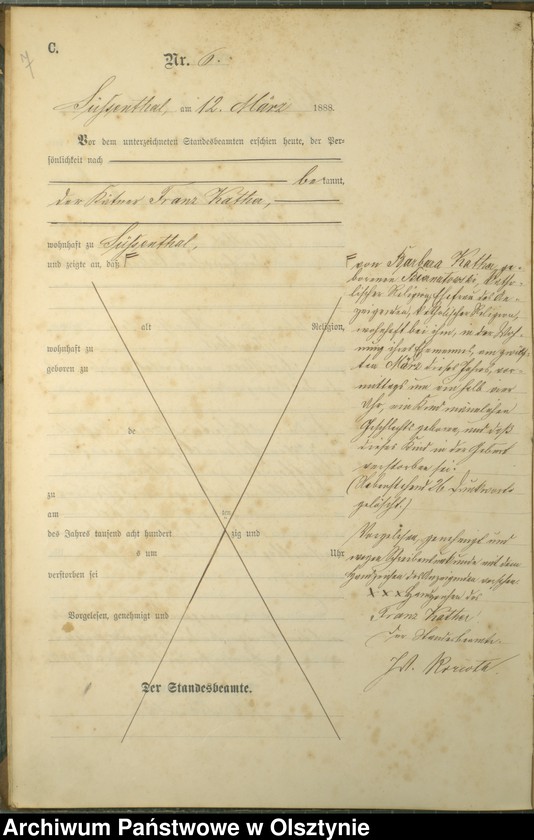 7
C.
Nr. 6.
Süssenthal, am 12. März 1888.
Vor dem unterzeichneten Standesbeamten erschien heute, der Per-
sönlichkeit nach
bekannt,
der Käthner Franz Kather,
wohnhaft zu Süssenthal,
und zeigte an, daß
alt Religion,
wohnhaft zu
geboren zu
de
zu
am ten
des Jahres tausend acht hundert zig und
s um Uhr
verstorben sei
Vorgelesen, genehmigt und
Der Standesbeamte.
von Barbara Kather, ge-
borenen, katho-
lischer Religion, Ehefrau des An-
zeigenden, katholischer Religion,
wohnhaft bei ihm, in der Woh-
nung ihres Ehemannes, am zwölf-
ten März dieses Jahres, vor-
mittags um ein halb vier
Uhr, ein Kind männlichen
Geschlechts geboren, und daß
dieses Kind in der Geburt
verstorben sei.
(Nebenstehend 26 Druckworte
gelöscht.)
Vorgelesen, genehmigt und
wegen Schreibensunkunde mit dem
Handzeichen des Anzeigenden versehen
+++ Handzeichen des
Franz Kather
Der Standesbeamte.
J.V.
Archiwum Państwowe w Olsztynie